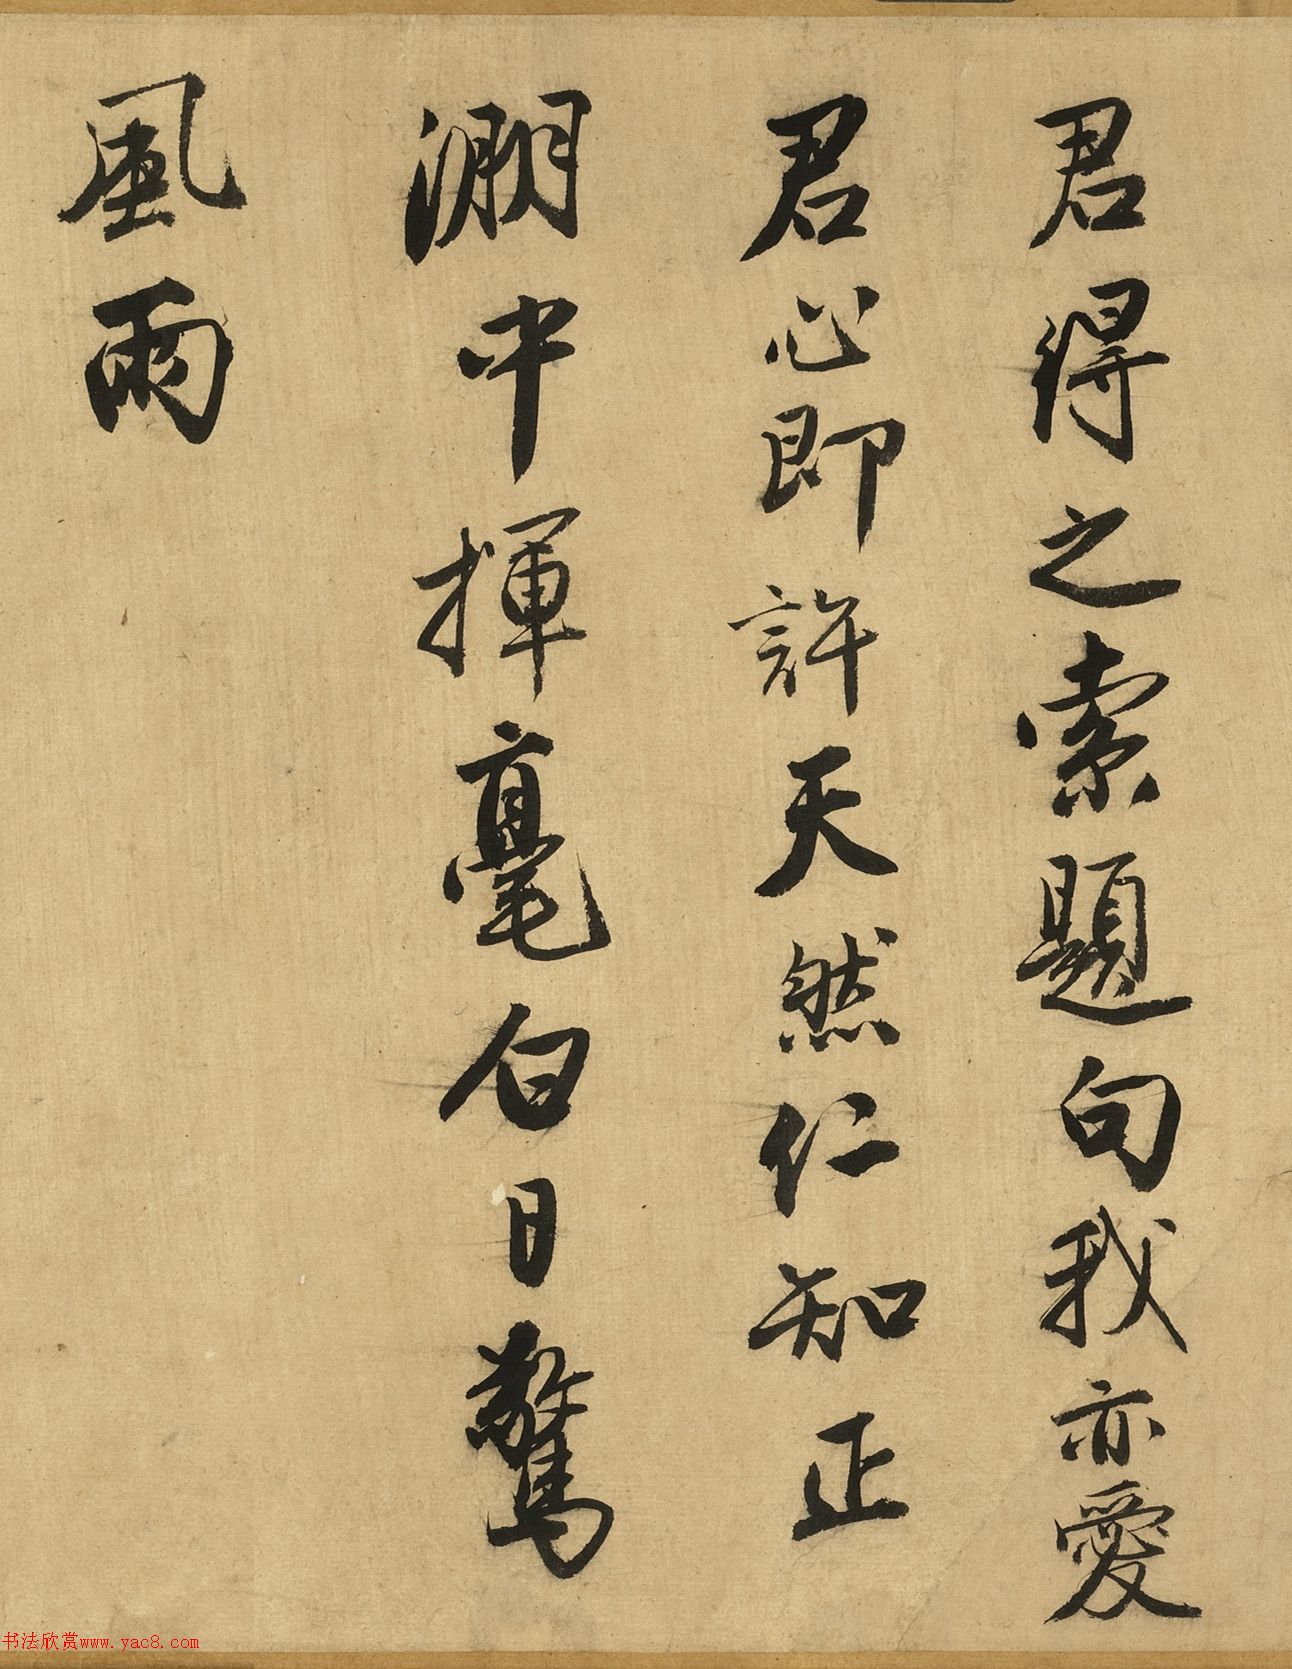 君得之索題句我亦愛
君心即許天然仁知正
淵中揮毫白日驚
風雨
书法欣赏www.yac8.com